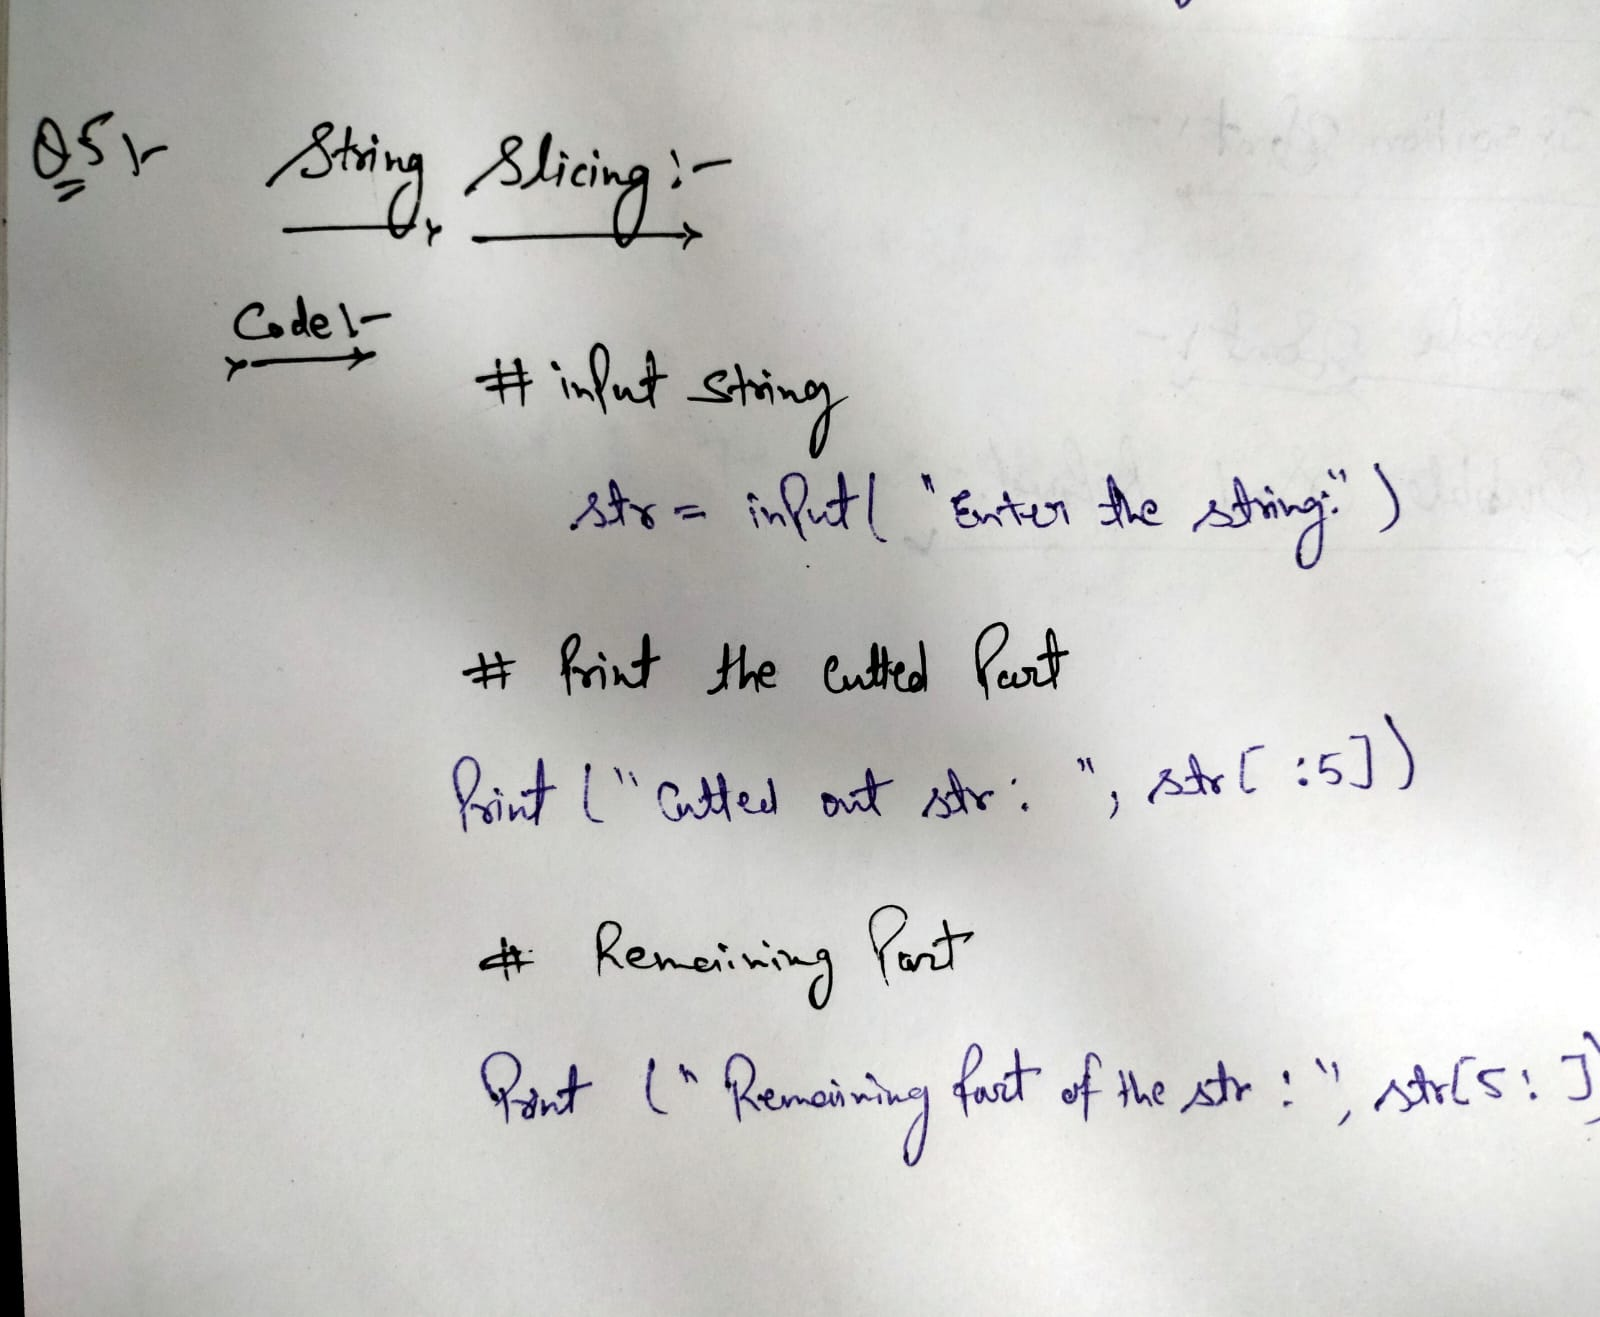 Q5:- String Slicing:-
Code:-
# input string
str = input("Enter the string:")
# Print the cutted Part
Print ("Cutted out str: ", str[ :5])
# Remaining Part
Print ("Remaining Part of the str : ", str[5: ])